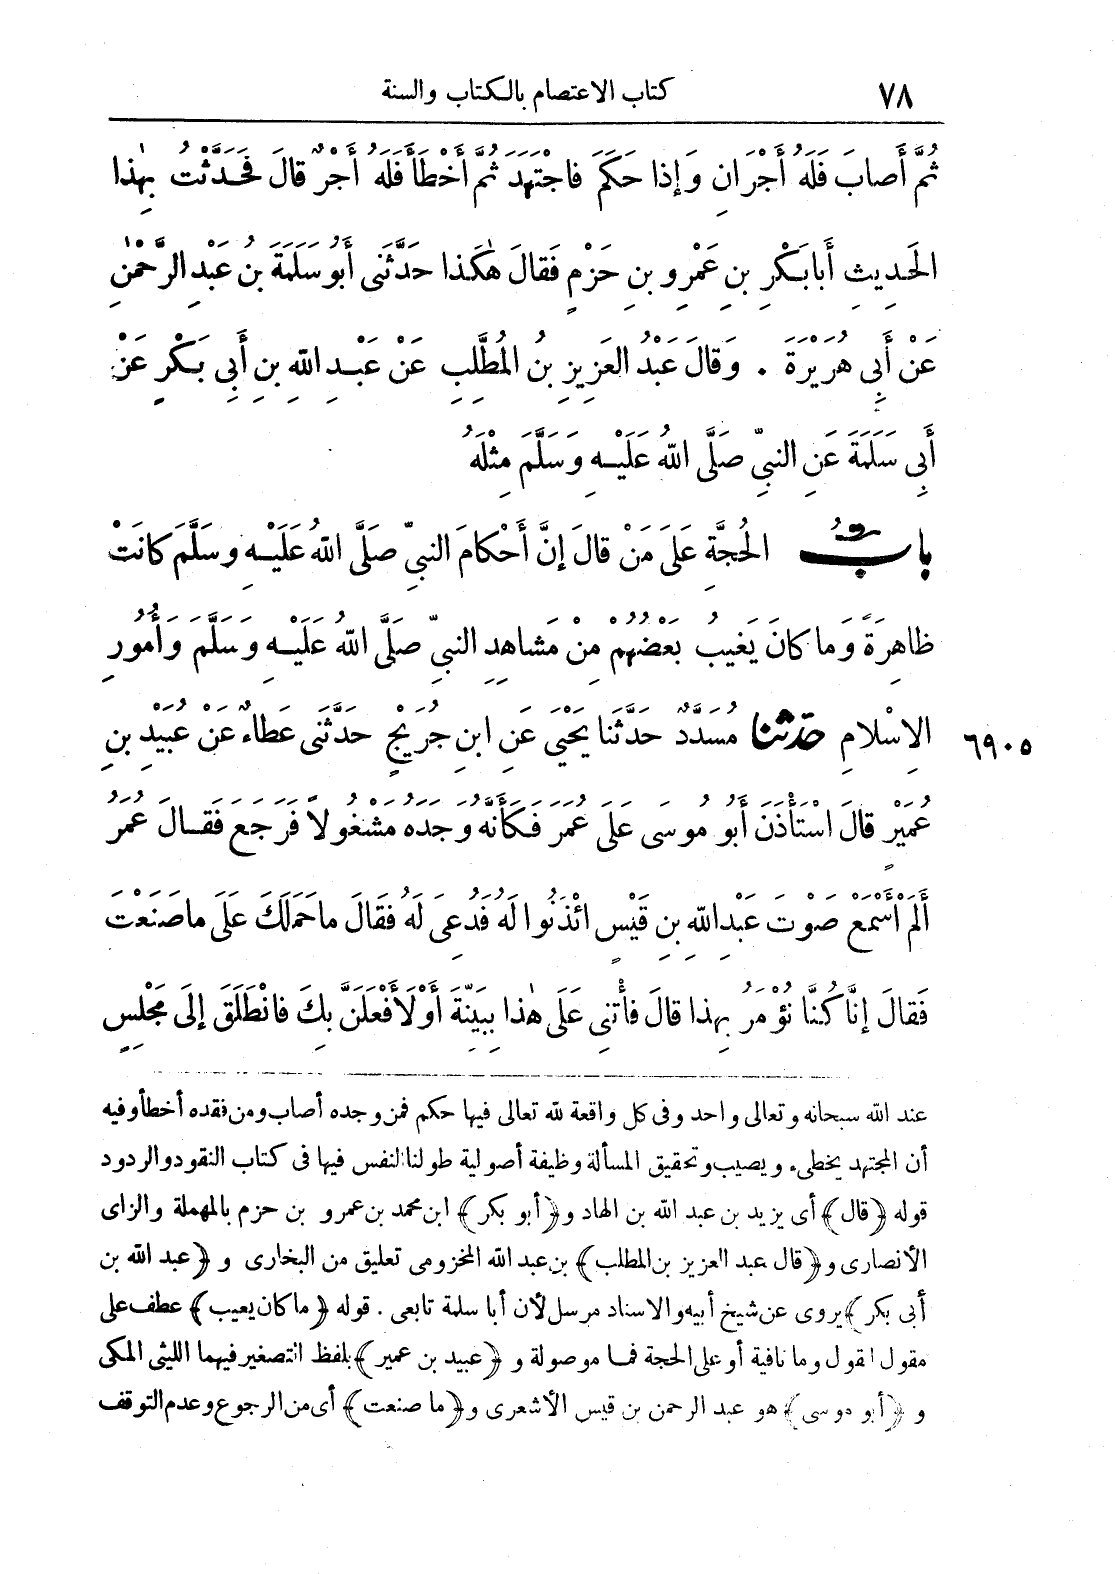 ٧٨ كتاب الاعتصام بالكتاب والسنة
ثُمَّ أَصابَ فَلَهُ أَجْرَانِ وَإذا حَكَمَ فاجْتَهَدَ ثُمَّ أَخْطَأَ فَلَهُ أَجْرٌ قالَ فَحَدَّثْتُ بِهٰذا
الحَدِيثِ أَبابَكْرِ بنِ عَمْرِو بنِ حَزْمٍ فَقالَ هٰكَذا حَدَّثَنى أَبُو سَلَمَةَ بنُ عَبْدِ الرَّحْمٰنِ
عَنْ أَبِى هُرَيْرَةَ . وَقالَ عَبْدُ العَزِيزِ بنُ المُطَّلِبِ عَنْ عَبْدِ اللهِ بنِ أَبِى بَكْرٍ عَنْ
أَبِى سَلَمَةَ عَنِ النبىِّ صَلَّى اللهُ عَلَيْهِ وَسَلَّمَ مِثْلَهُ
بابُ الحُجَّةِ عَلَى مَنْ قالَ إنَّ أَحْكامَ النبىِّ صَلَّى اللهُ عَلَيْهِ وَسَلَّمَ كانَتْ
ظاهِرَةً وَما كانَ يَغِيبُ بَعْضُهُمْ مِنْ مَشاهِدِ النبىِّ صَلَّى اللهُ عَلَيْهِ وَسَلَّمَ وَأُمُورِ
الإِسْلامِ حَدَّثَنا مُسَدَّدٌ حَدَّثَنا يَحْيَى عَنِ ابنِ جُرَيْجٍ حَدَّثَنَى عَطاءٌ عَنْ عُبَيْدِ بنِ ٦٩٠٥
عُمَيْرٍ قالَ اسْتَأْذَنَ أَبُو مُوسَى عَلَى عُمَرَ فَكَأَنَّهُ وَجَدَهُ مَشْغُولاً فَرَجَعَ فَقالَ عُمَرُ
أَلَمْ أَسْمَعْ صَوْتَ عَبْدِ اللهِ بنِ قَيْسٍ ائْذَنُوا لَهُ فَدُعِىَ لَهُ فَقالَ ماحَمَلَكَ عَلَى ماصَنَعْتَ
فَقالَ إنَّا كُنَّا نُؤْمَرُ بِهذا قالَ فَأْتِنى عَلَى هٰذا بِبَيِّنَةٍ أَوْ لَأَفْعَلَنَّ بِكَ فانْطَلَقَ إلَى مَجْلِسٍ
عند الله سبحانه وتعالى واحد وفى كل واقعة لله تعالى فيها حكم فمن وجده أصاب ومن فقده أخطأ وفيه
أن المجتهد يخطىء ويصيب وتحقيق المسألة وظيفة أصولية طولنا النفس فيها فى كتاب النقود والردود
قوله ﴿قال﴾ أى يزيد بن عبد الله بن الهاد و﴿أبو بكر﴾ ابن محمد بن عمرو بن حزم بالمهملة والزاى
الأنصارى و﴿قال عبد العزيز بن المطلب﴾ بن عبد الله المخزومى تعليق من البخارى و ﴿عبد الله بن
أبى بكر﴾ يروى عن شيخ أبيه والاسناد مرسل لأن أبا سلمة تابعى . قوله ﴿ما كان يغيب﴾ عطف على
مقول القول وما نافية أو على الحجة فما موصولة و ﴿عبيد بن عمير﴾ بلفظ التصغير فيهما الليثى المكى
و ﴿أبو موسى﴾ هو عبد الرحمن بن قيس الأشعرى و﴿ما صنعت﴾ أى من الرجوع وعدم التوقف